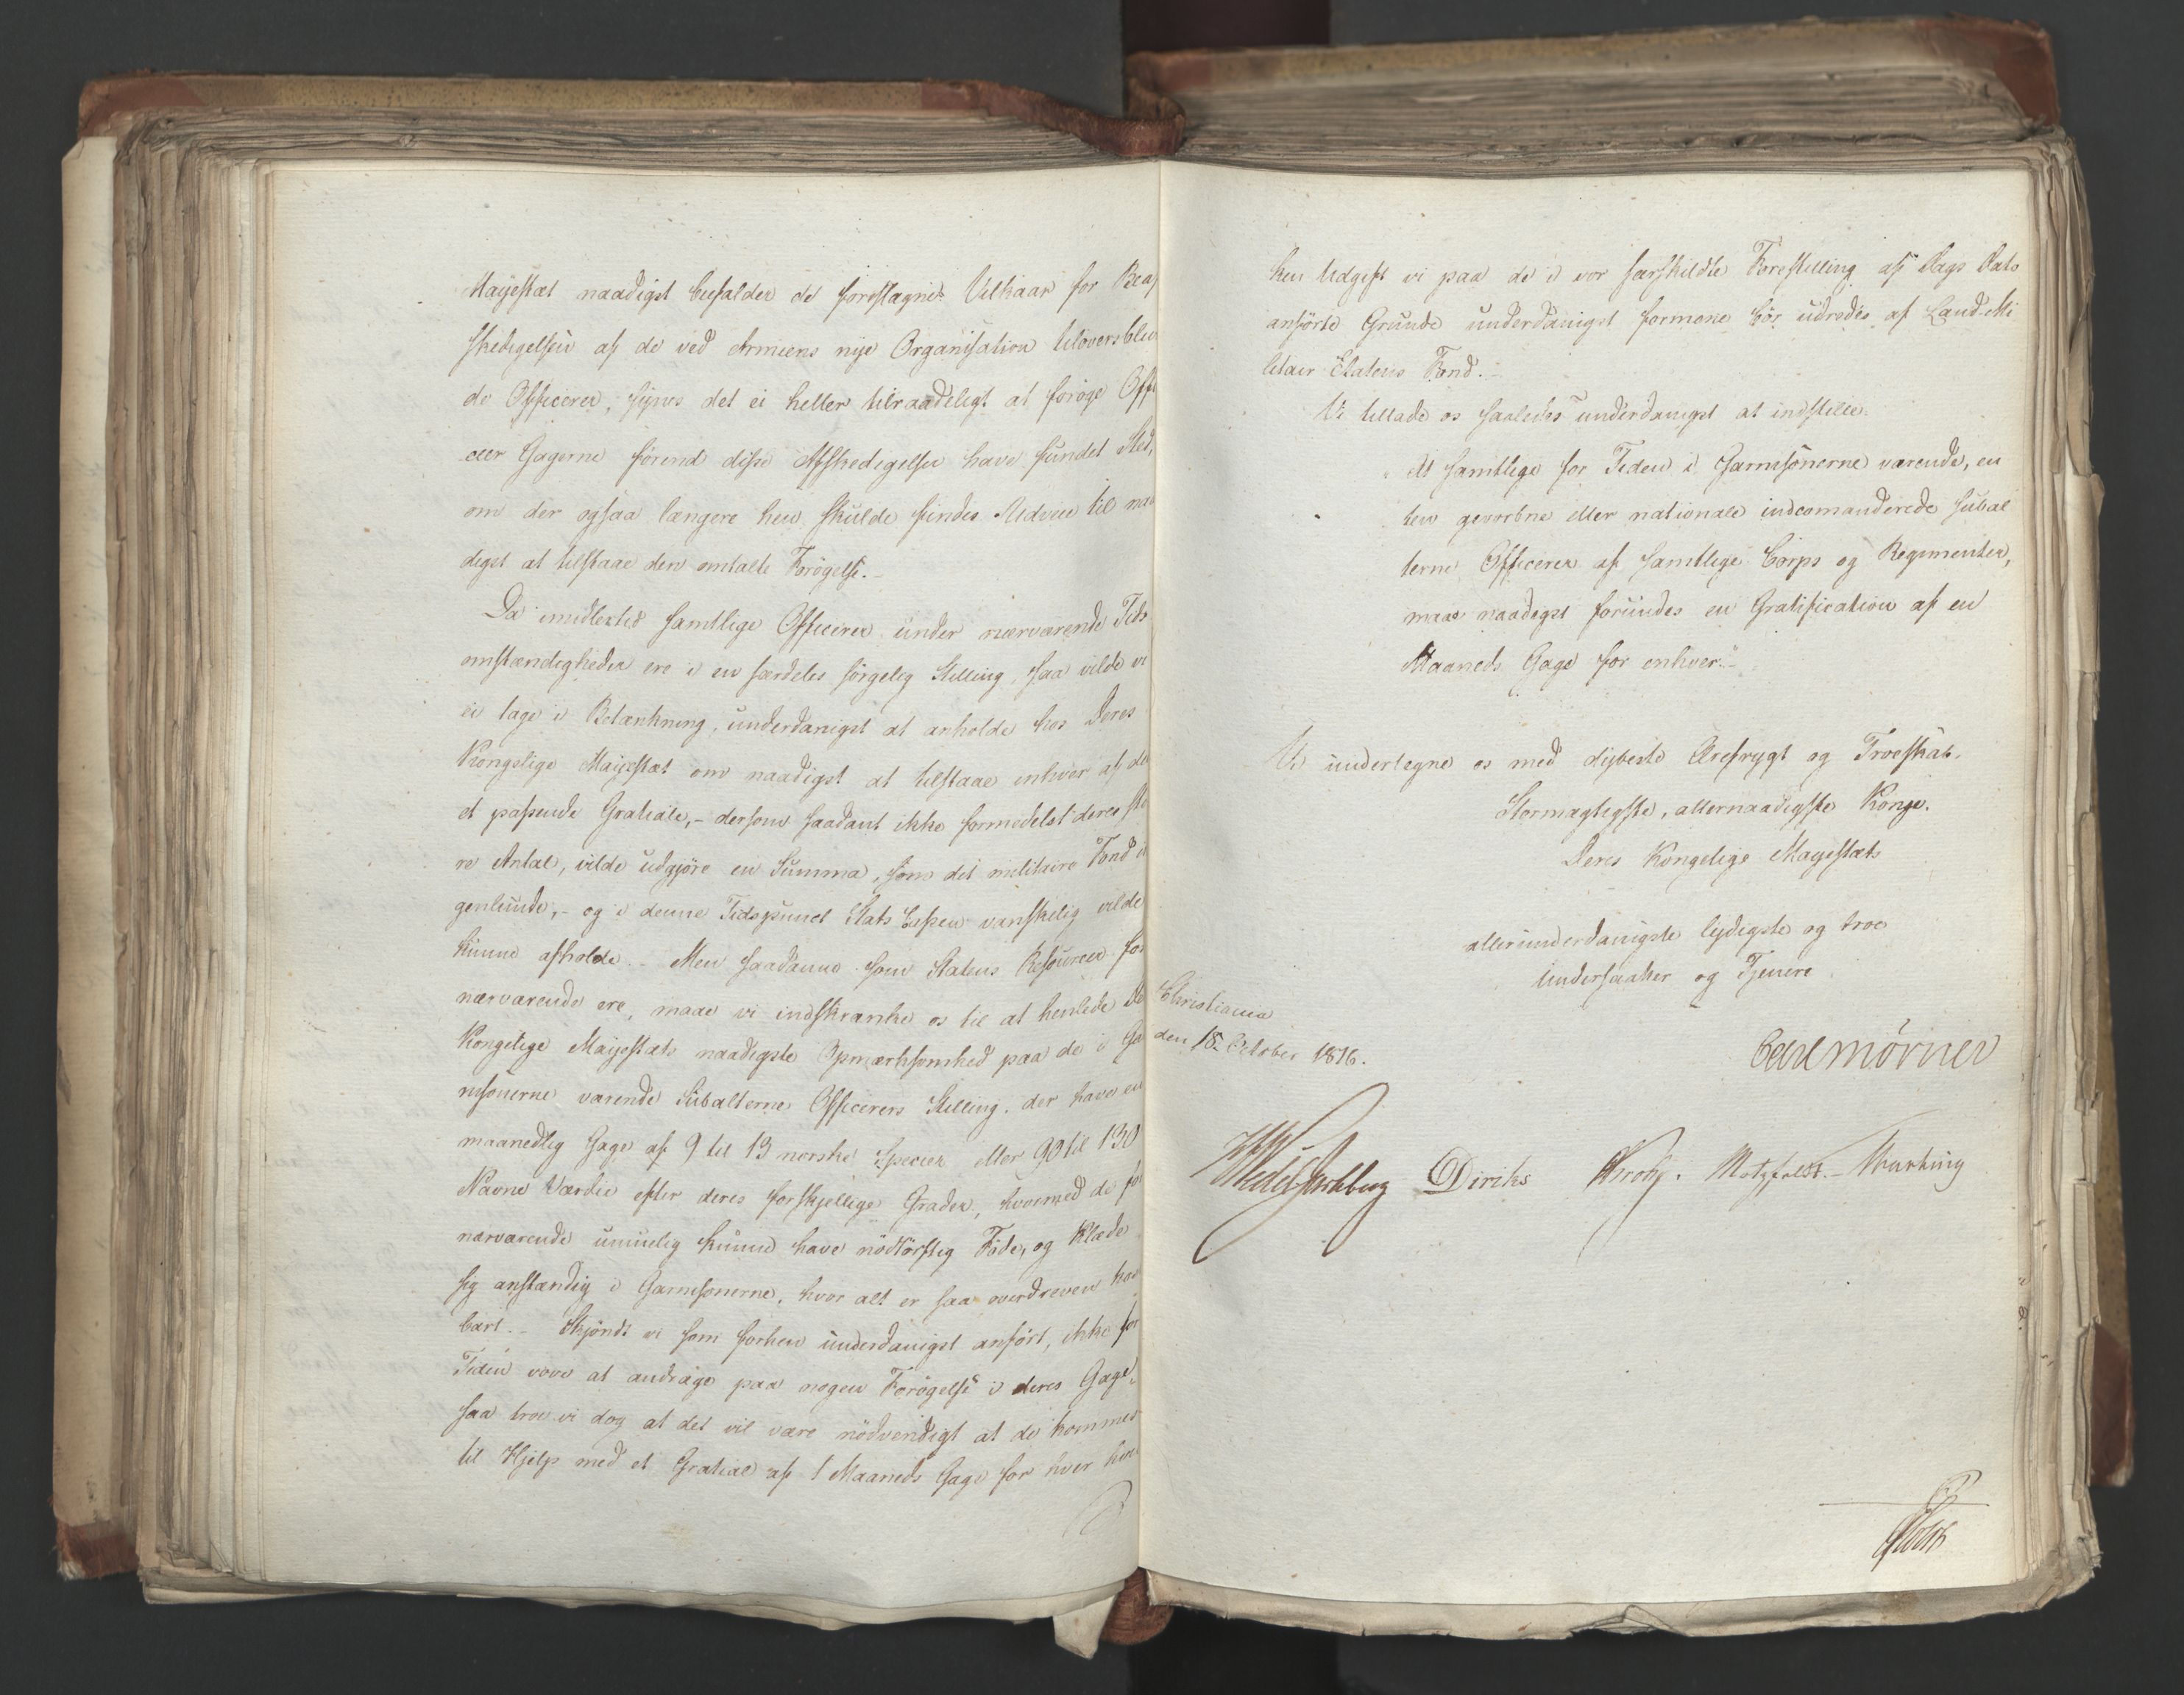 Mayestæt naadigst befalder de foreslagne Vilkaar for Beaf
skedigelsen af de ved Armeens nye Organisation tiloversblev
de Officerer, synes det ei heller tilraadeligt at forøge Offi
ceer Gagerne førend disse Afskedigelser have fundet Sted,
om der ogsaa længere hen skulde findes Udvei til naa
digst at tilstaae den omtalte Forøgelse.-
Da imidlertid samtlige Officerer under nærværende Tids
omstændigheder ere i en særdeles sørgelig Stilling, saa vilde vi
ei tage i Betænkning, underdanigst at anholde hos Deres
Kongelige Mayestæt om naadigst at tilstaae enhver af de
et passende Gratiale,- dersom saadant ikke formedelst deres sto
re Antal, vilde udgjøre en Summa, som det militaire Fond in
genlunde,- og i denne Tidspunct Stats Cassen vanskelig vilde
kunne afholde.- Men saadanne som Statens Resourcer for
nærværende ere, maae vi indskrænke os til at henlede De
Kongelige Mayestæts naadigste Opmærksomhed paa de i Ga
nisonerne værende Subalterne Officerers Stilling, der have en
maanedlig Gage af 9 til 13 norske Specier eller 90 til 130
Navne Værdie efter deres forskjellige Grader, hvormed de for
nærværende umuelig kunne have nødtørftig Føde, og Klæde
sig anstændig i Garnisonerne, hvor alt er saa overdreven kos
bart.- Skjøndt vi som forhen underdanigst anført, ikke for
Tiden vove at andrage paa nogen Forøgelse i deres Gage,
saa troe vi dog at det vil være nødvendigt at de kommes
til Hjelp med et Gratiale af 1 Maaneds Gage for hver hvil
ken Udgift vi paa de i vor særskildte Forestilling af Dags Dato
anførte Grunde underdanigst formene bør udredes af Land-Mi
litair Etatens Fond.-
Vi tillade os saaledes underdanigst at indstille:
At samtlige for Tiden i Garnisonerne værende, en
ten gevorbne eller nationale indcomanderede Subal
terne Officerer af samtlige Corps og Regimenter,
maae naadigst forundes en Gratification af en
Maaneds Gage for enhver."-
Vi undertegne os med dybeste Ærefrygt og Troeskab.
Stormægtigste, allernaadigste Konge.
Deres Kongelige Mayestæts
allerunderdanigste lydigste og troe
Undersaatter og Tjenere
Christiania
den 18 October 1816.
Carl Mörner
HWedel Jarlsberg Diriks Krohg. Motzfeldt.- Thurbing
Holst